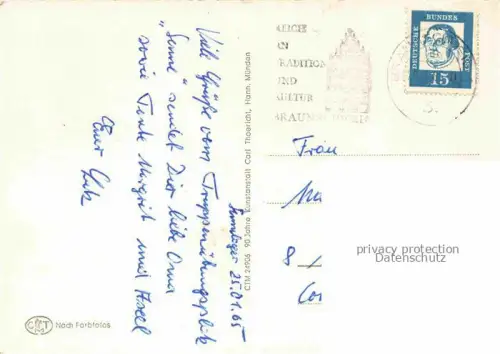 Viele Grüße vom Truppenübungsplatz
"Senne" sendet Dir liebe Oma
sowie Tante Margrit und Axel
Euer
Sennelager 25.01.65
CTM 24906 90 Jahre Kunstanstalt Carl Thoericht, Hann. Münden
Nach Farbfotos
REICH
AN
TRADITION
UND
KULTUR
BRAUNSCHWEIG
DEUTSCHE BUNDESPOST
15
Frau
privacy protection
Datenschutz